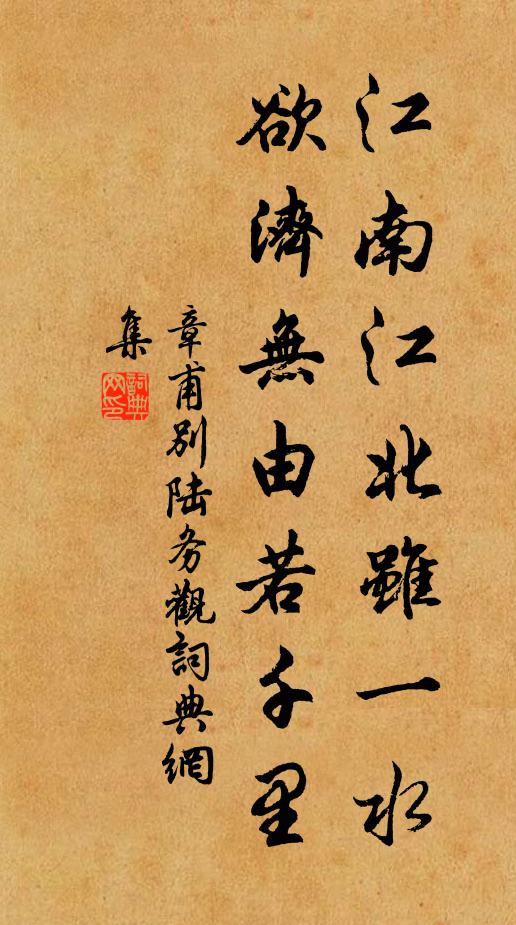 江南江北雖一水
欲濟無由若千里
章甫別陆务觀詞典網
集
詞典網印